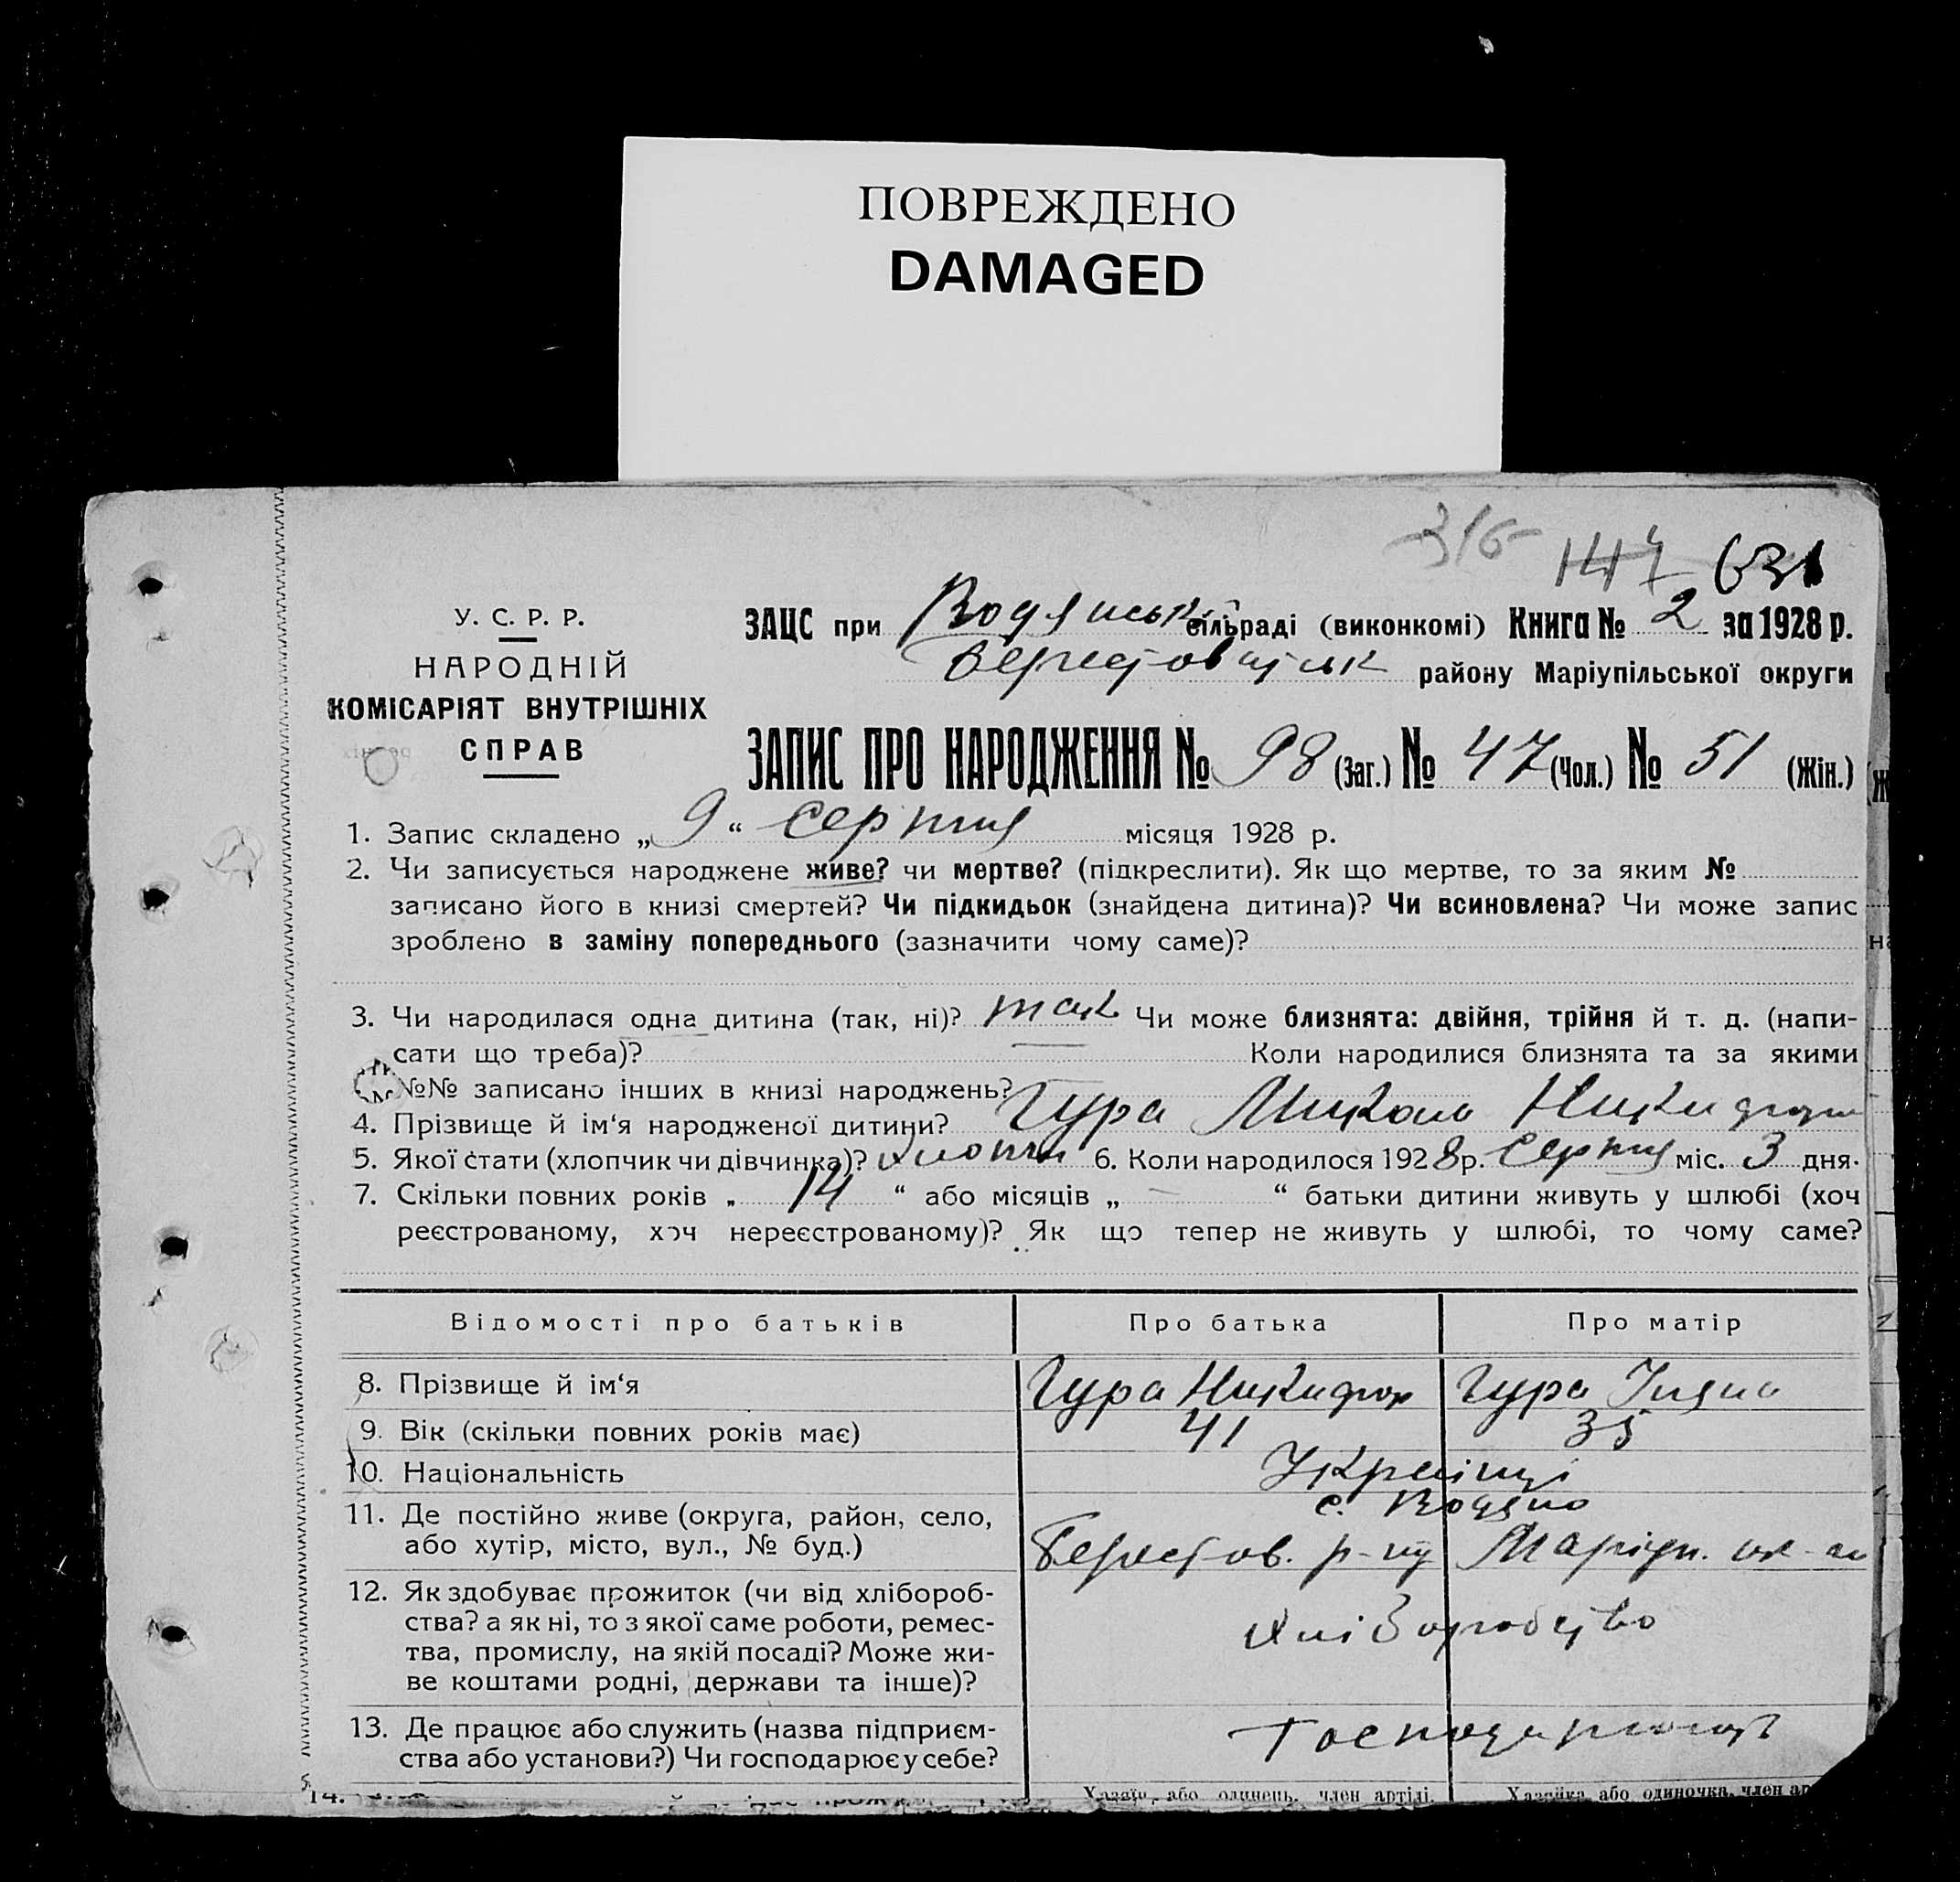 ПОВРЕЖДЕНО
DAMAGED
147 631
У. С. Р. Р.
НАРОДНІЙ
КОМІСАРІЯТ ВНУТРІШНІХ
СПРАВ
ЗАЦС при Водянській сільраді (виконкомі) Книга № 2 за 1928 р.
району Маріупільської округи
ЗАПИС ПРО НАРОДЖЕННЯ № 98 (Заг.) № 47 (Чол.) № 51 (Жін.)
1. Запис складено „ 9 “ серпня місяця 1928 р.
2. Чи записується народжене живе? чи мертве? (підкреслити). Як що мертве, то за яким №
записано його в книзі смертей? Чи підкидьок (знайдена дитина)? Чи всиновлена? Чи може запис
зроблено в заміну попереднього (зазначити чому саме)?
3. Чи народилася одна дитина (так, ні)? так Чи може близнята: двійня, трійня й т. д. (напи-
сати що треба)? Коли народилися близнята та за якими
№№ записано інших в книзі народжень?
4. Прізвище й ім‘я народженої дитини? Гура Микола
5. Якої стати (хлопчик чи дівчинка)? хлопч 6. Коли народилося 1928 р. серпня міс. 3 дня.
7. Скільки повних років „ 14 “ або місяців „ — “ батьки дитини живуть у шлюбі (хоч
реєстрованому, хоч нереєстрованому)? Як що тепер не живуть у шлюбі, то чому саме?
Відомості про батьків Про батька Про матір
8. Прізвище й ім‘я Гура Никифор Гура
9. Вік (скільки повних років має) 41 35
10. Національність Українці
с. Водяно
11. Де постійно живе (округа, район, село,
або хутір, місто, вул., № буд.) Берестов. р-ну Маріуп. ок-ги
12. Як здобуває прожиток (чи від хлібороб-
ства? а як ні, то з якої саме роботи, ремес-
тва, промислу, на якій посаді? Може жи-
ве коштами родні, держави та інше)?
хліборобство
13. Де працює або служить (назва підприєм-
ства або установи?) Чи господарює у себе?
14. Хазяїн, або одинець, член артілі. Хазяйка або одиночка, член